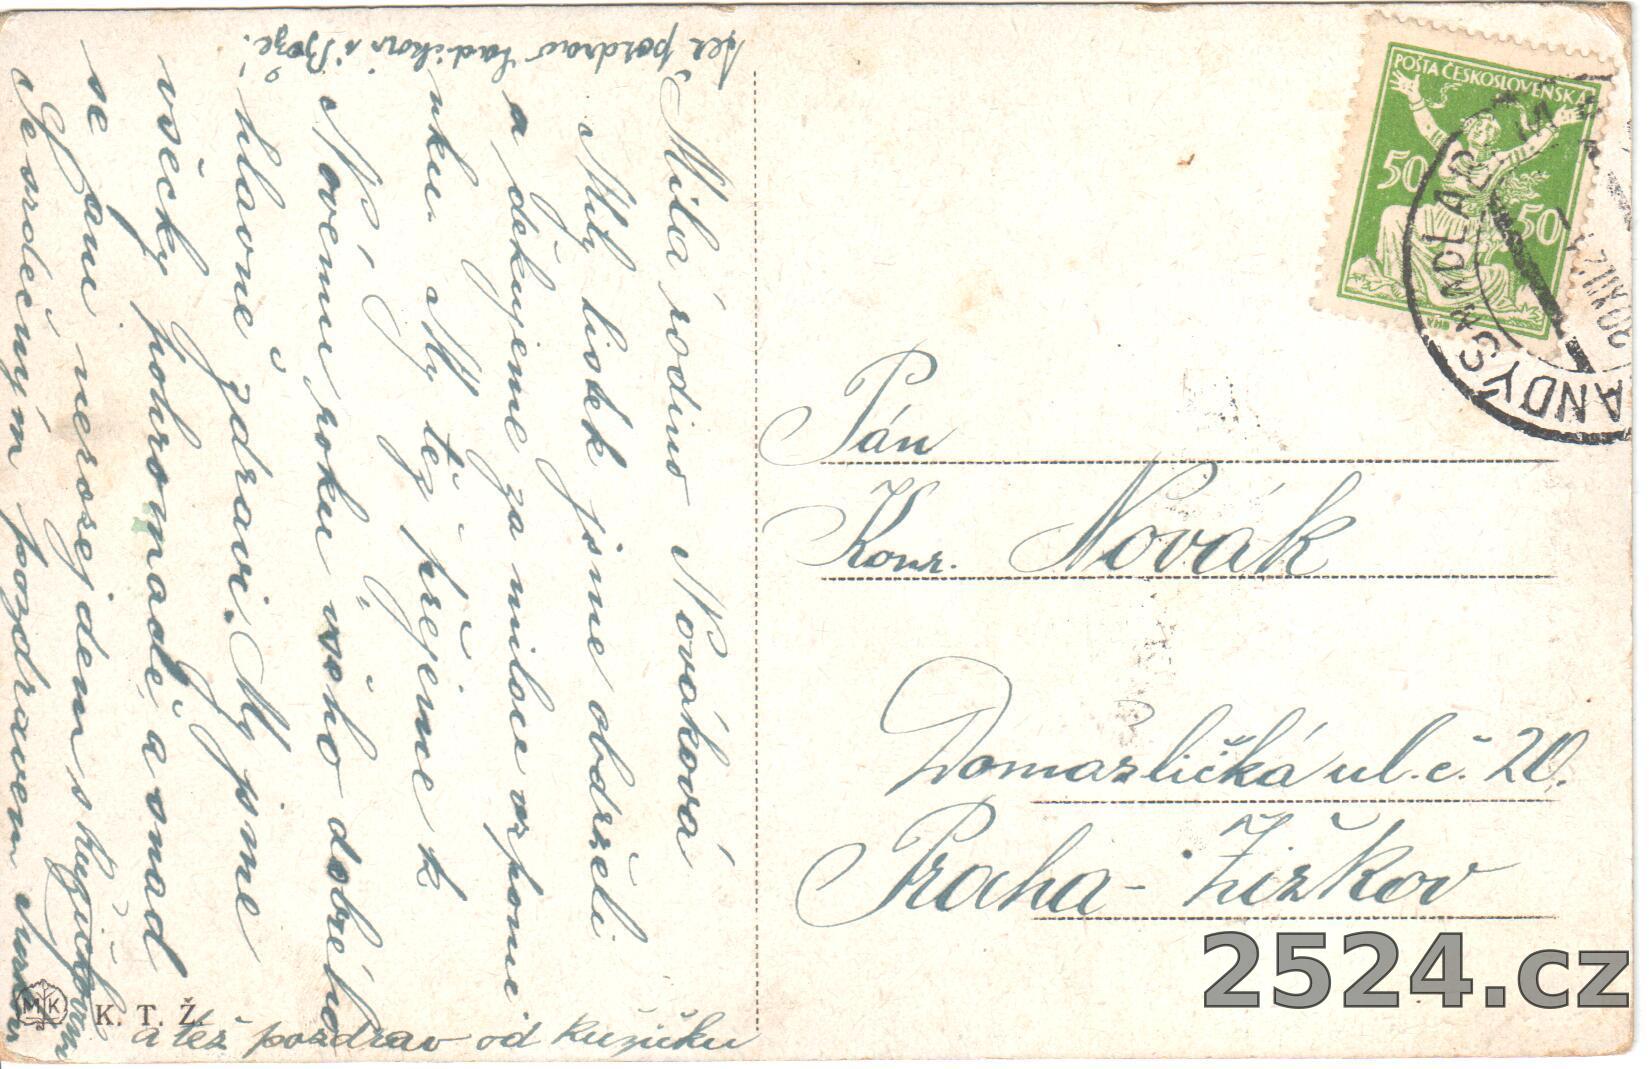 Milá rodino Novákova
Milý lístek jsme obdrželi
a děkujeme za milou vzpomí
nku. My též přejeme k
Novému roku všeho dobrého
hlavně zdraví. My jsme
všecky pohromadě, a snad
se ani nerozejdem s Kuzičkovem
Se srdečným pozdravem
též pozdrav
a též pozdrav od Kužičku
MK
K. T. Ž.
POŠTA ČESKOSLOVENSKÁ
50
50
BRANDÝS N. LAB
20.XII.2
Pán
Konr. Novák
Domazličká ul. č. 20.
Praha - Žižkov
2524.cz